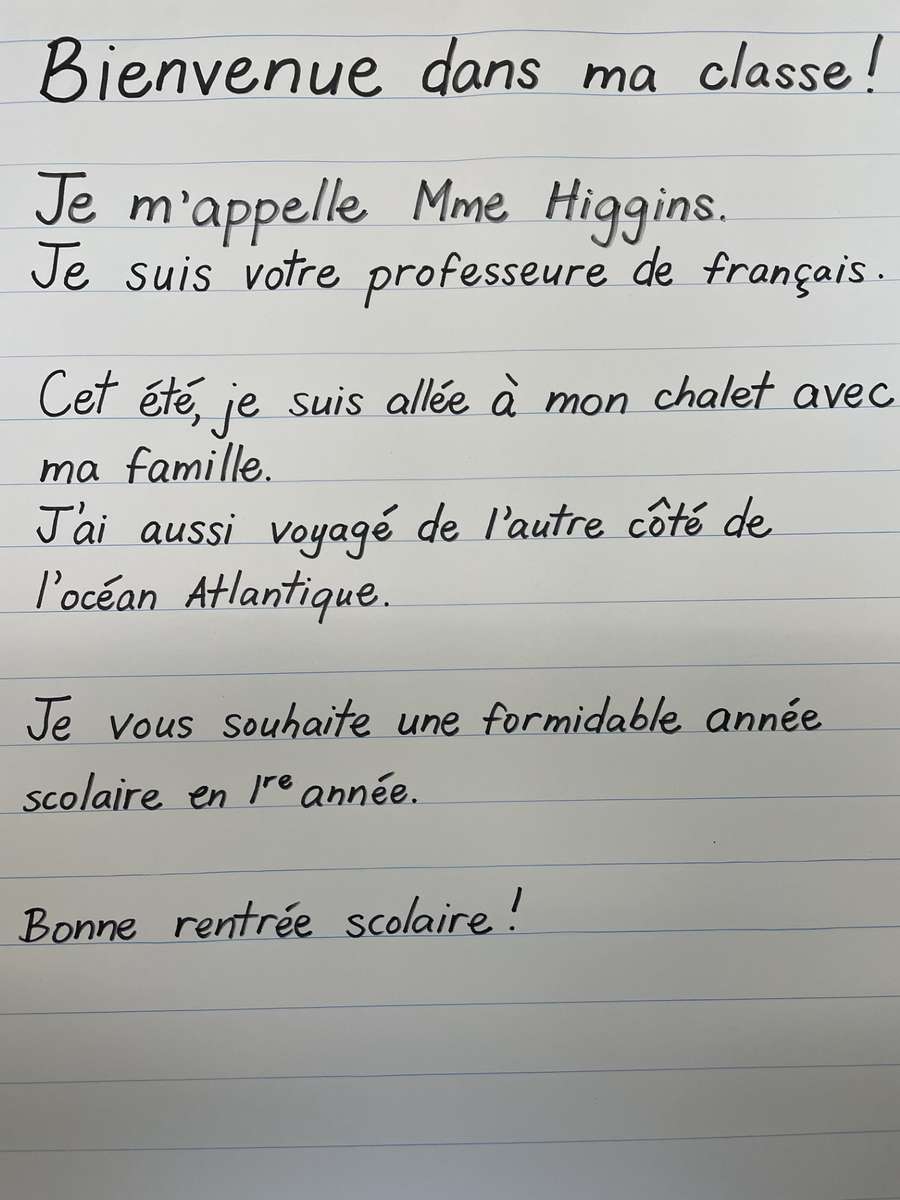 Bienvenue dans ma classe!
Je m'appelle Mme Higgins.
Je suis votre professeure de français.
Cet été, je suis allée à mon chalet avec
ma famille.
J'ai aussi voyagé de l'autre côté de
l'océan Atlantique.
Je vous souhaite une formidable année
scolaire en 1re année.
Bonne rentrée scolaire!